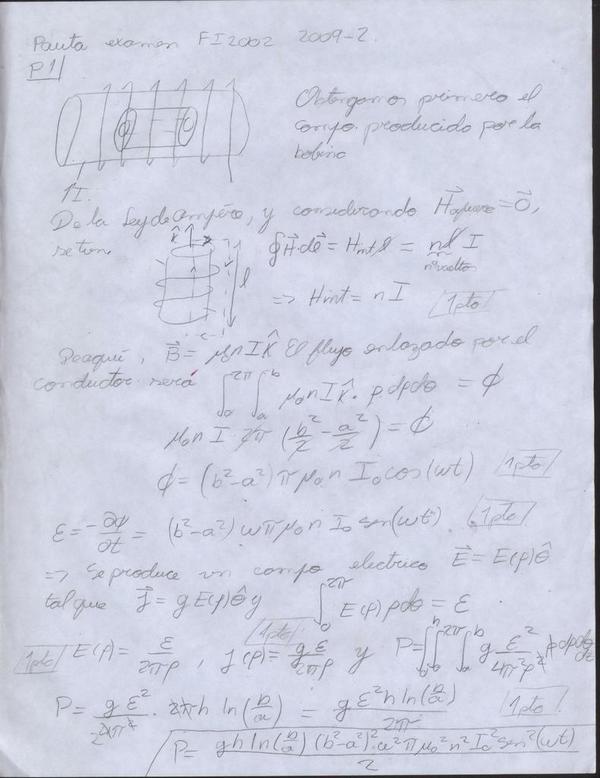 Pauta examen FI2002 2009-2.
P1|
Obtengamos primero el
campo producido por la
bobina
I.
De la Ley de ampére, y considerando H⃗afuera = 0⃗,
se tiene
k̂
l
∮H⃗·dl⃗ = Hint l = nl I
nºvueltas
=> Hint = nI [1pto]
De aquí, B⃗ = μ₀nIk̂ El flujo enlazado por el
conductor será ∫₀^2π ∫ₐ^b μ₀nIk̂· ρdρdθ = ϕ
μ₀nI 2π (b²/2 - a²/2) = ϕ
ϕ = (b²-a²)πμ₀n I₀cos(wt) [1pto]
ε = -∂ϕ/∂t = (b²-a²)wπμ₀n I₀ sen(wt) [1pto]
=> se produce un campo electrico E⃗ = E(ρ)θ̂
tal que J⃗ = gE(ρ)θ̂ y ∫₀^2π E(ρ)ρdθ = ε
[1pto] E(ρ) = ε/2πρ, J(ρ) = gε/2πρ [1pto] y P = ∫₀^h ∫₀^2π ∫ₐ^b g ε²/4π²ρ² ρdρdθdz
P = gε²/4π² · 2πh ln(b/a) = gε²h ln(b/a)/2π [1pto]
P = gh ln(b/a) (b²-a²)² w²πμ₀²n²I₀²sen²(wt)/2